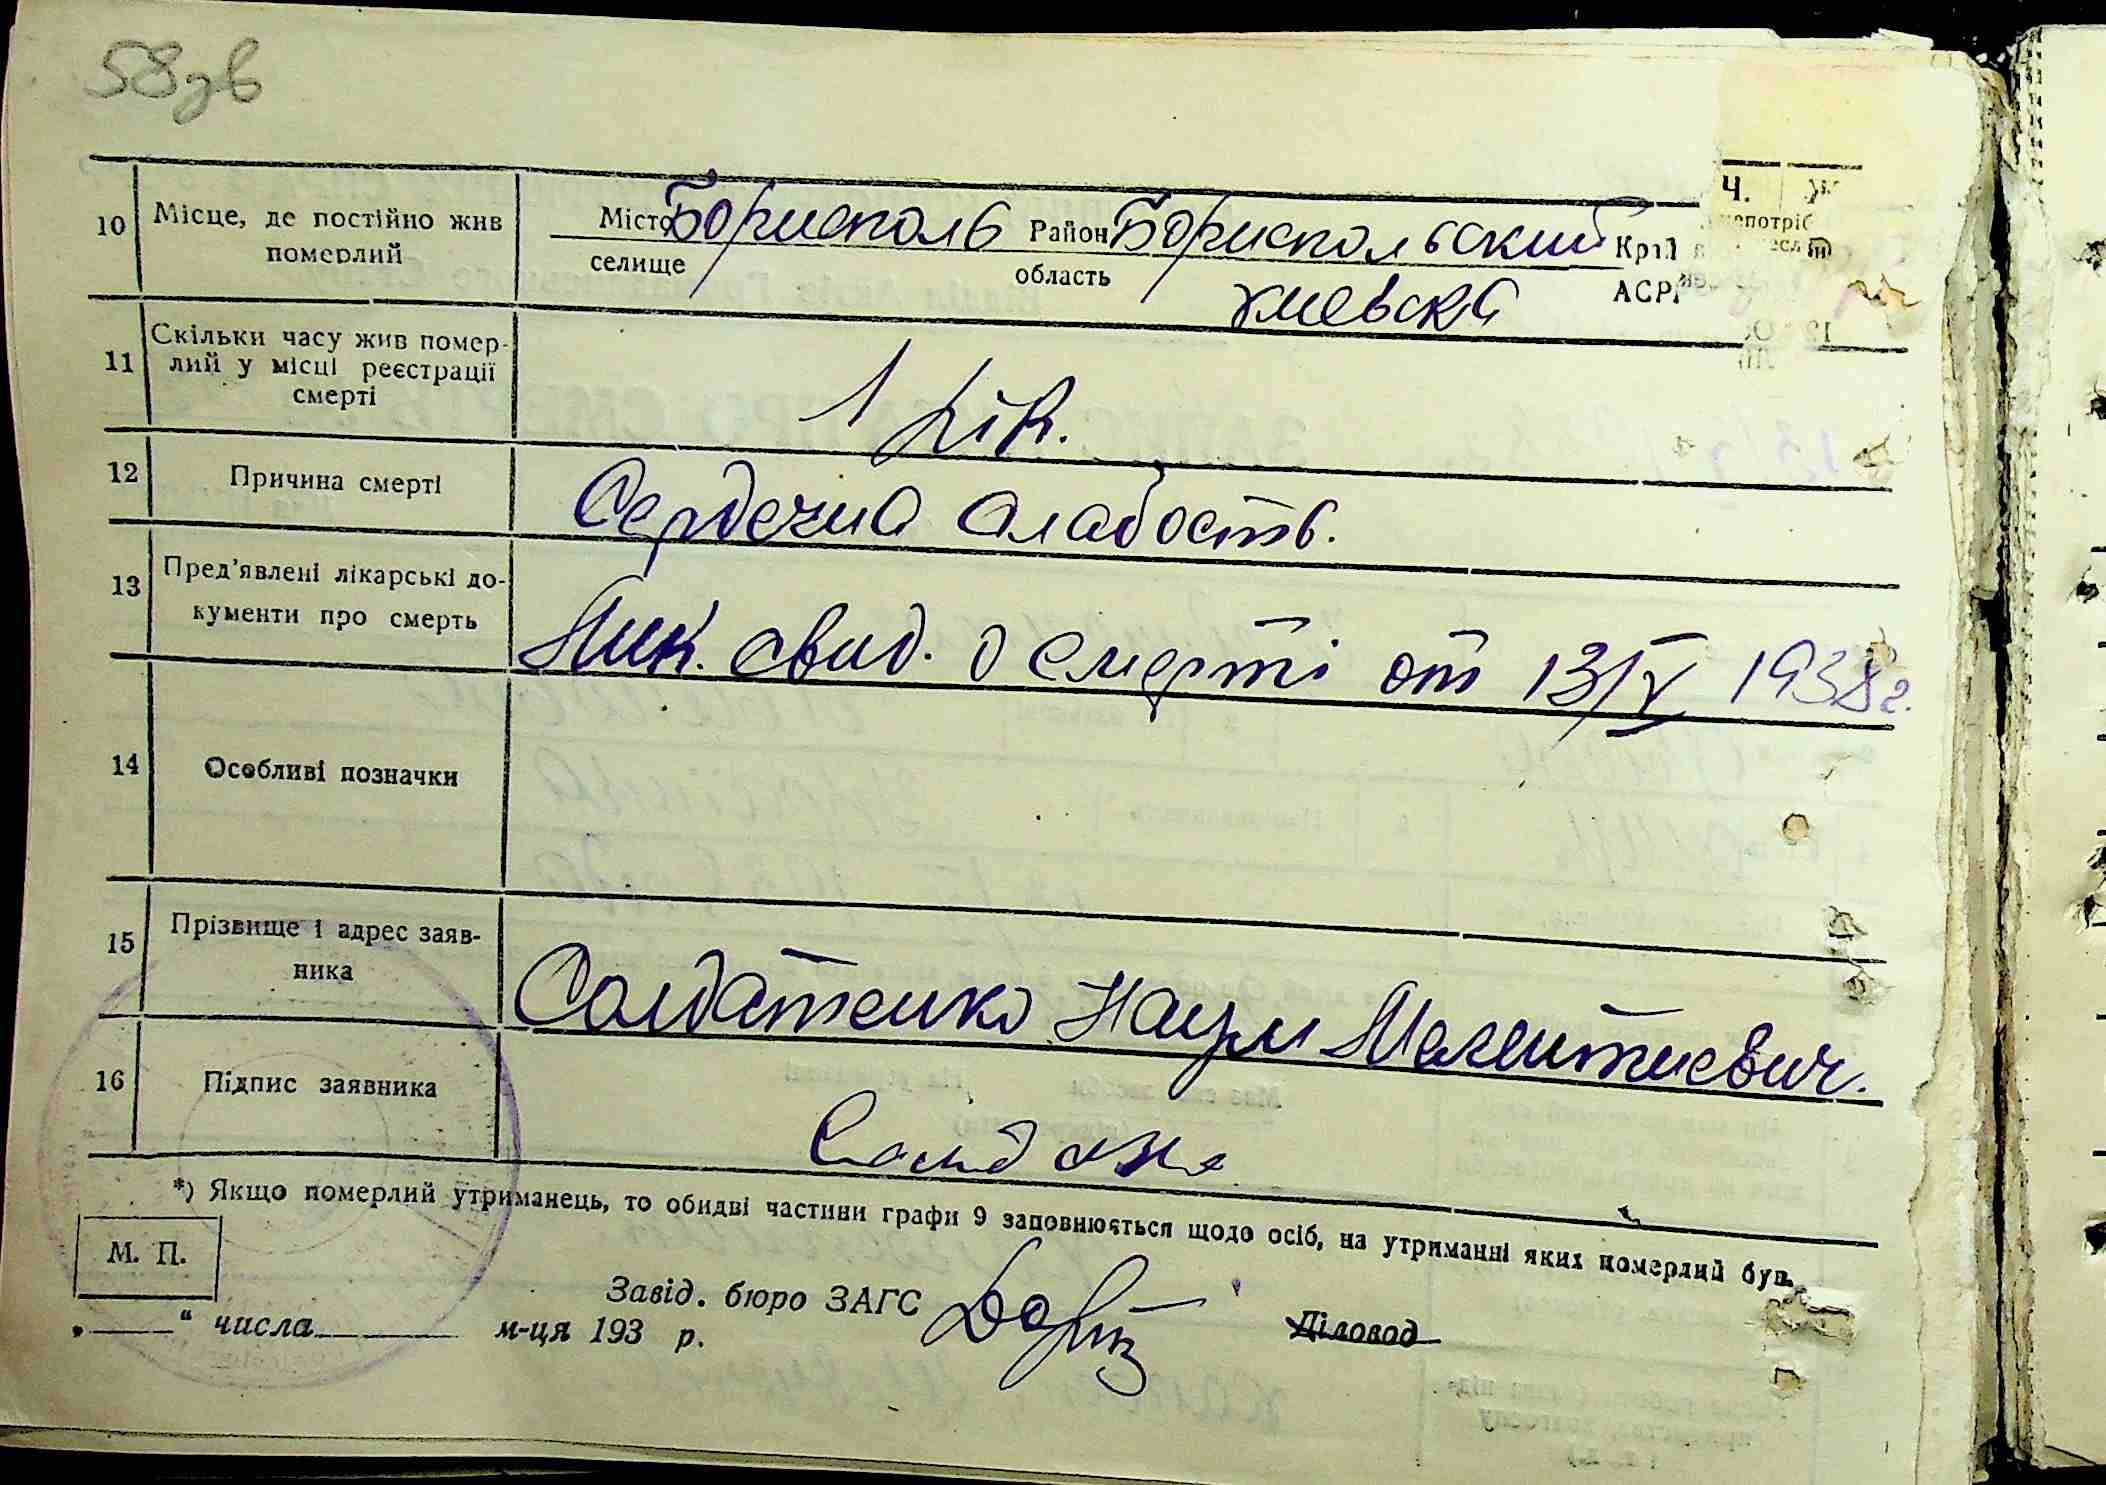 58зв
10 Місце, де постійно жив Місто Борисполь Район Бориспольский Край
померлий селище область Киевска АСРР
11 Скільки часу жив помер-
лий у місці реєстрації
смерті 1 рік.
12 Причина смерті Сердечна слабость.
13 Пред'явлені лікарські до-
кументи про смерть Лик. свид. о смерті от 13/V 1938г.
14 Особливі позначки
15 Прізвище і адрес заяв-
ника Солдатенко Наум Мелентиевич.
16 Підпис заявника
*) Якщо померлий утриманець, то обидві частини графи 9 заповнюється щодо осіб, на утриманні яких померлий був.
М. П.
Завід. бюро ЗАГС Діловод
„ “ числа м-ця 193 р.